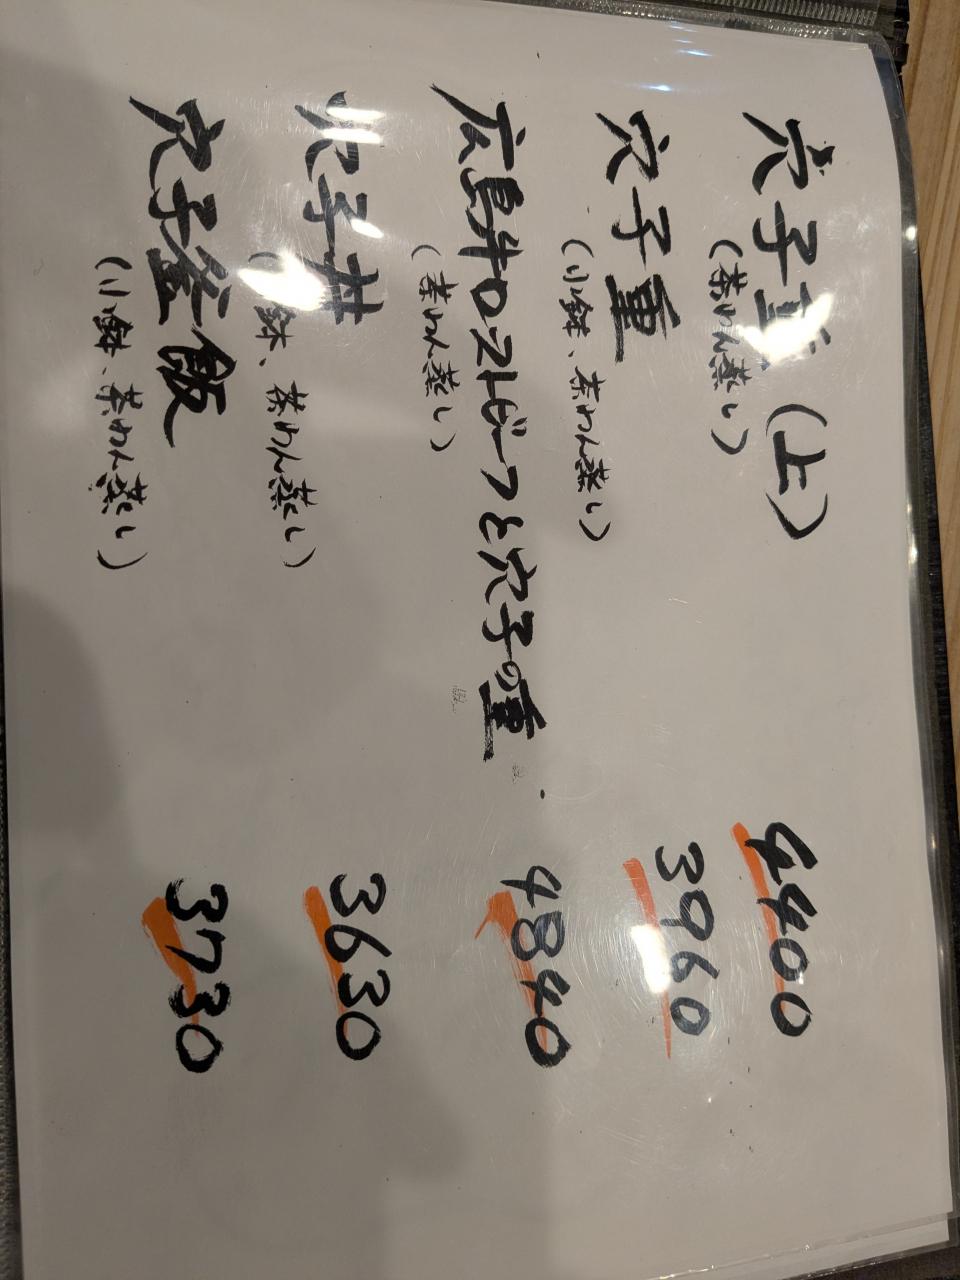 穴子重(上)
(茶わん蒸し)
4400
穴子重
(小鉢、茶わん蒸し)
3960
広島牛ローストビーフと穴子の重
(茶わん蒸し)
4840
穴子丼
鉢、茶わん蒸し)
3630
穴子釜飯
(小鉢、茶わん蒸し)
3730